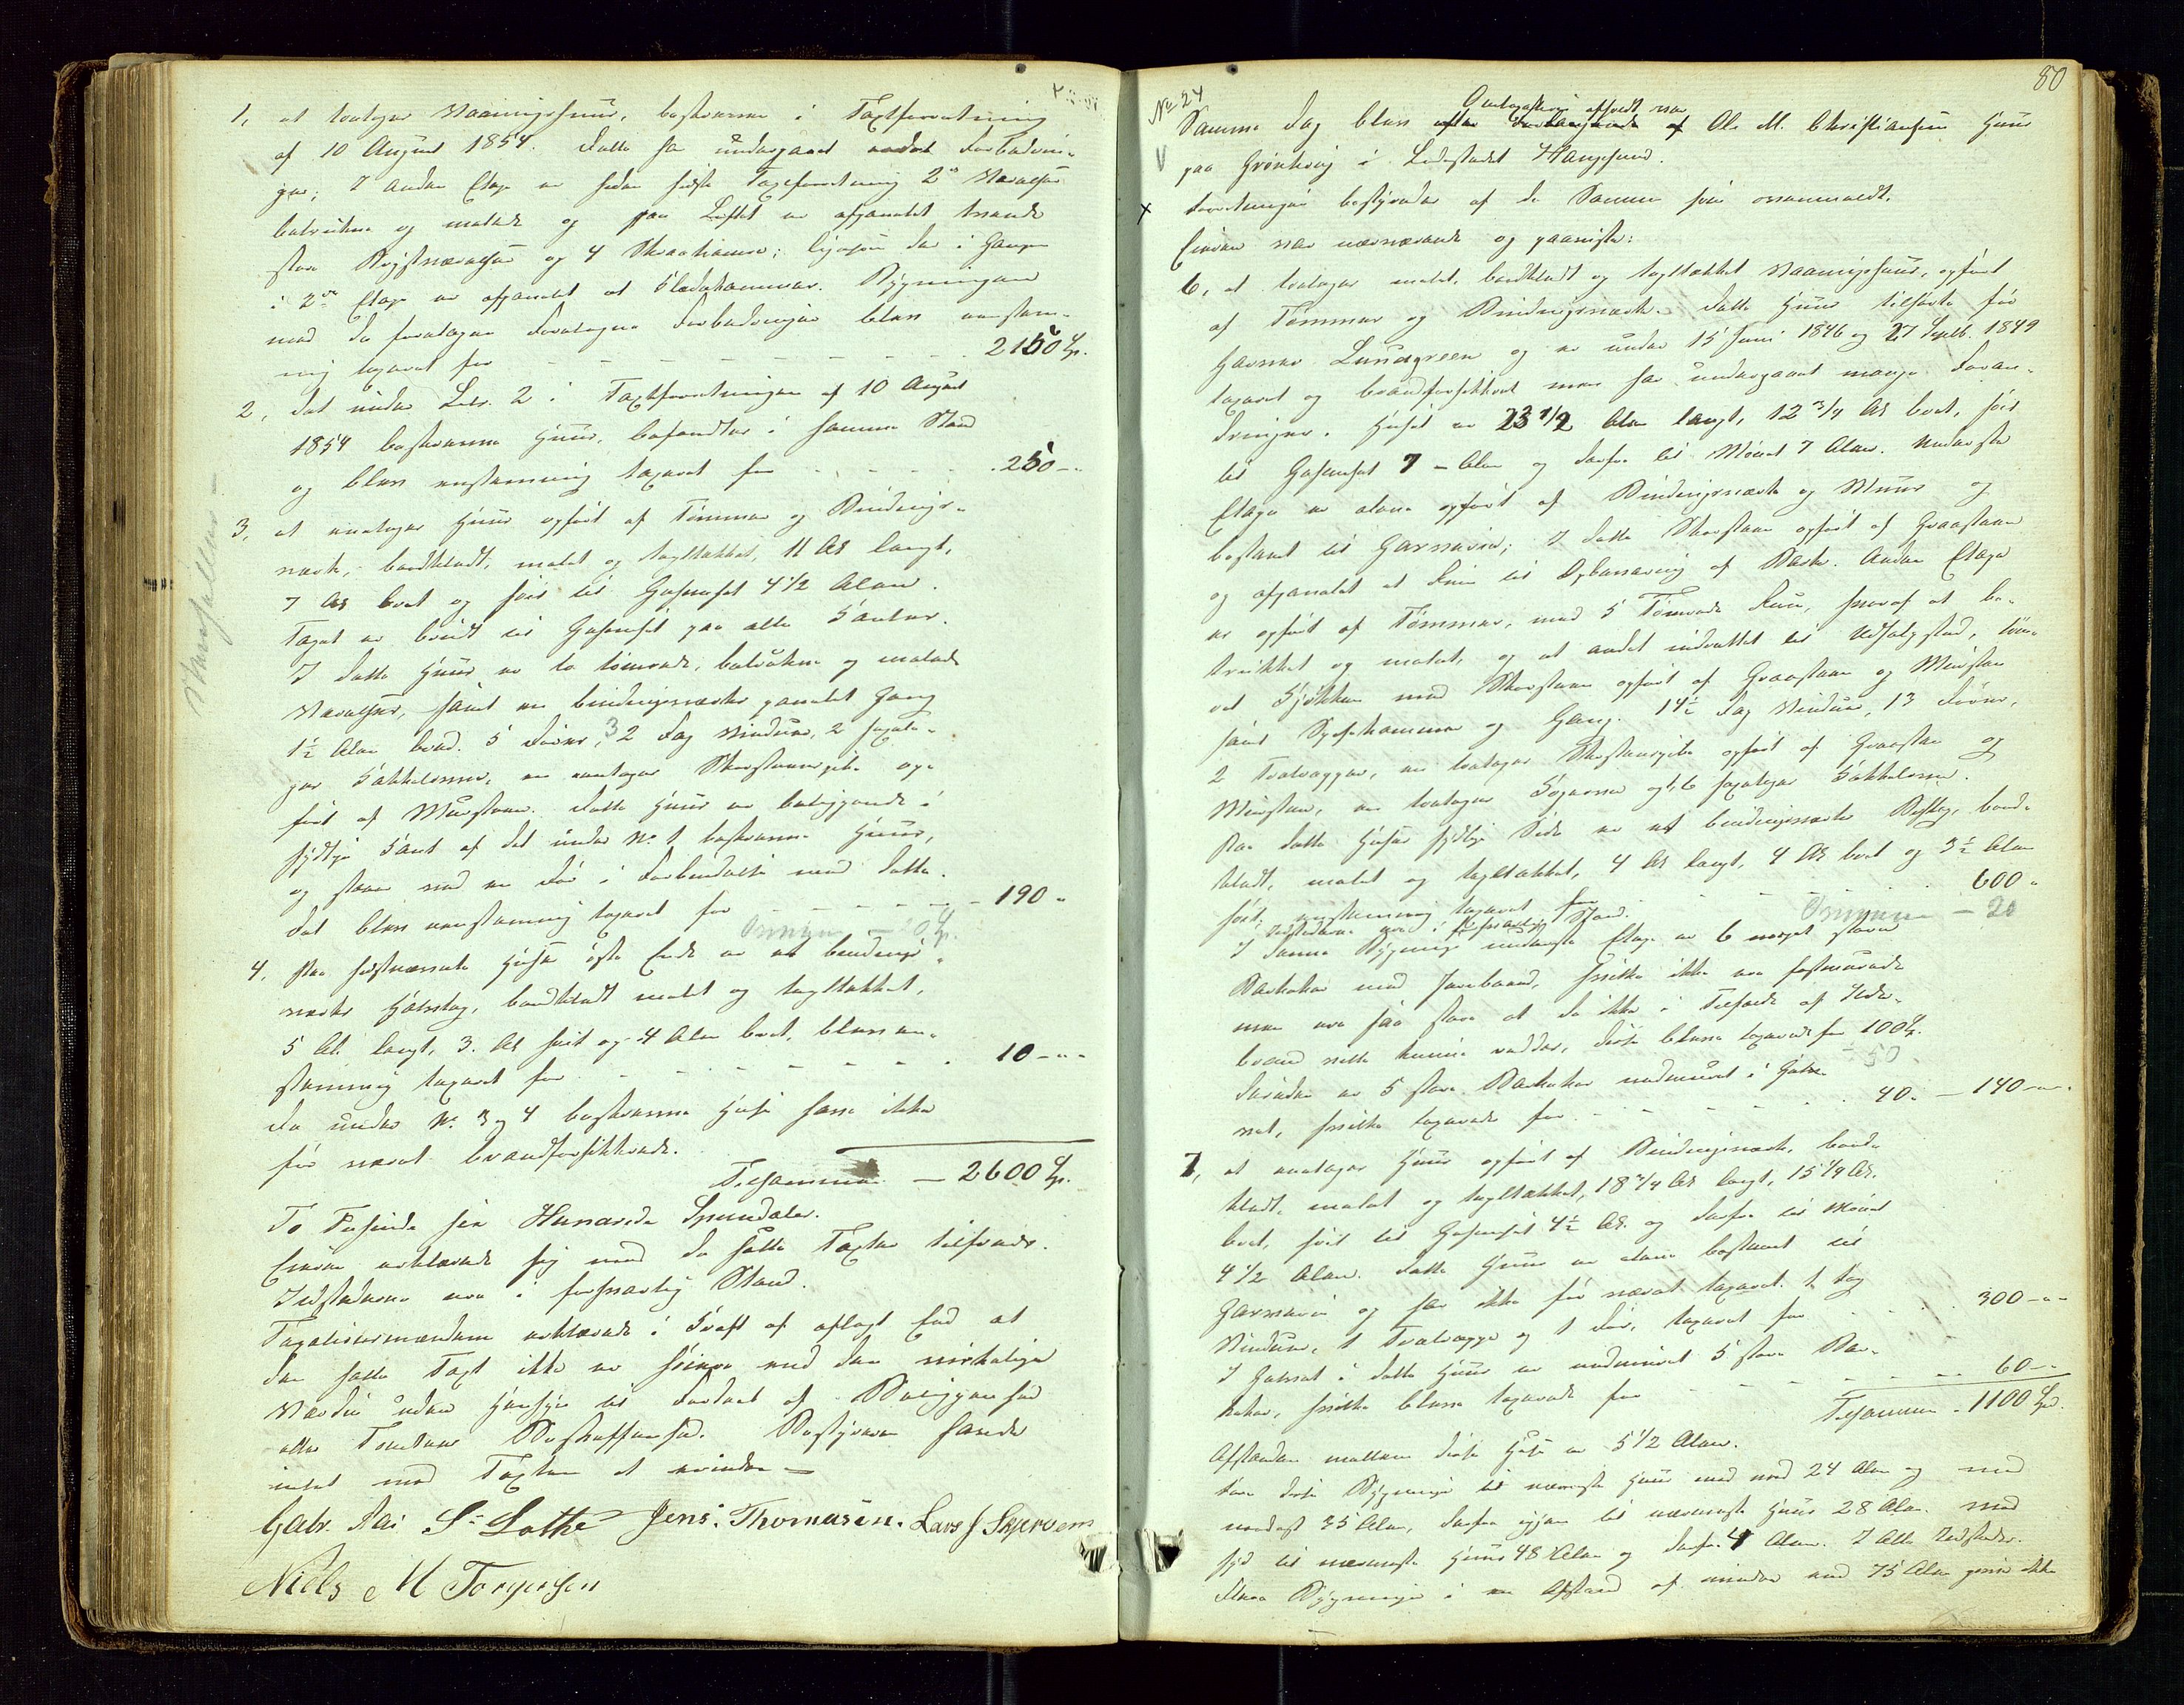 1, et toetages Vaaningshuus, beskreven i Taxtforretning
af 10 August 1854. Dette har undergaaet Forbedrin-
ger; I anden Etage er siden sidste Taxtforretning 2de Værelser
betrukne og malede og paa Loftet er afpanelet tvende
store Qvistværelser og 4 Skraakamre; ligesom der i Gangen
i 2den Etage er afpanelet et Klædekammer. Bygningen
med de foretagne Forbedringer blev eenstem-
mig taxeret for - - - 2150 Sp.
2, det under Litr. 2 i Taxtforretningen af 10 August
1854 beskrevne Huus, befandtes i samme Stand
og blev eenstemmig taxeret for - - - 250 --
3, et eenetages Huus opført af Tømmer og Bindings-
værk, bordklædt, malet og tagtækket, 11 Al. langt,
7 Al. bredt og høit til Gesimset 4 1/2 Alen.
Taget er brudt til Gesimset paa alle Kanter.
I dette Huus er to tømrede, betrukne og malede
Værelser, samt en bindingsværks panelet Gang
1 1/2 Alen bred. 5 Dører, 3 2 Fag Vinduer, 2 fagete-
ger Kakkelovne, en eenetages Skorsteenspibe op-
ført af Muursteen. Dette Huus er beliggende i
sydlige Kant af det under No. 1 beskrevne Huus,
og staaer ved en Dør i Forbindelse med dette.
Det blev eenstemmig taxeret for - - - 190 "
4, Paa sidstnævnte Huses østre Ende er et bindings-
værks Halvtag, bordklædt malet og tagtækket,
5 Al. langt, 3 Al. høit og 4 Alen bredt, blev een-
stemmig taxeret for - - - 10 - - -
De under No. 3 og 4 beskrevne Huse have ikke
før været brandforsikkrede.
Tilsammen — 2600 Sp.
To Tusinde sex Hundrede Speciedaler.
Eieren erklærede sig med de satte Taxter tilfreds.
Ildstederne ere i forsvarlig Stand.
Taxationsmændene erklærede i Kraft af aflagt Eed at
den satte Taxt ikke er høiere end den virkelige
Værdie uden Hensyn til Fordeel af Beliggenhed
eller Tomtens Beskaffenhed. Bestyreren havde
intet mod Taxten at erindre —
Gabr. Aai S. Lothe Jens. Thomasen. Lars J Skjervem
Niels M Torgersen
80
No 24
Samme Dag blev Omtaxation afholdt over Ole M. Christiansens Huus
paa Grønhoug i Ladestedet Haugesund.
Forretningen bestyredes af de Samme som ovenmeldt.
Eieren var nærværende og paaviste:
6, et toetages malet, bordklædt og tagtækket Vaaningshuus, opført
af Tømmer og Bindingsværk. Dette Huus tilhørte før
Garver Lundgreen og er under 15 Juni 1846 og 27 Septb. 1849
taxeret og brandforsikkret men har undergaaet mange Foran-
dringer. Huset er 23 1/2 Alen langt, 12 3/4 Al. bredt, høit
til Gesimset 7 - Alen og derfra til Mønet 7 Alen. Nederste
Etage er alene opført af Bindingsværk og Muur og
bestemt til Garverie; I dette Skorsteen opført af Graasteen
og afpanelet et Rum til Opbevaring af Bark. Anden Etage
er opført af Tømmer, med 5 Tømrede Rum, hvoraf et be-
trukket og malet, og et andet indrettet til Udsalgssted, tøm-
ret Kjøkken med Skorsteen opført af Graasteen og Muursteen
samt Spisekammer og Gang. 14 1/2 Fag Vinduer, 13 Dører,
2 Trætrapper, en toetages Skorsteenspibe opført af Graasteen og
Muursteen, en toetages Kogeovn og 1, 6 fagetages Kakkelovn.
Paa dette Huses sydlige Side er et bindingsværks Bislag, bord-
klædt, malet og tagtækket, 4 Al. langt, 4 Al. bredt og 3 1/2 Alen
høit, eenstemmig taxeret for - - - 600 "
Ildstederne ere i forsvarlig Stand.
— 20
I denne Bygnings nederste Etage er 6 meget store
Barkekar med Jernbaand, hvilke ikke ere fastmurede
men ere saa store at de ikke i Tilfælde af Ilde-
brand vilde kunne reddes, disse bleve taxerede for 100 Sp.
50
Desuden er 5 store Barkekar nedmuret i Gulv-
vet, hvilke taxerede for - - - 40. — 140 - - -
7, et eenetages Huus opført af Bindingsværk, bord-
klædt, malet og tagtækket, 18 3/4 Al. langt, 15 1/4 Al.
bredt, høit til Gesimset 4 1/2 Al. og derfra til Mønet
4 1/2 Alen. Dette Huus er alene bestemt til
Garverie og har ikke før været taxeret. 1 Fag
Vinduer, 1 Trætrappe og 1 Dør, taxeret for - - - 300 - - -
I Gulvet i dette Huus er nedmuret 5 store Bar-
kekar, hvilke bleve taxerede for - - - 60 - -
Tilsammen - 1100 Spd.
Afstanden mellem disse Huse er 5 1/2 Alen.
Fra disse Bygninger til nærmeste Huus mod nord 24 Alen og mod
nordost 35 Alen, derfra igjen til nærmeste Huus 28 Alen. Mod
syd til nærmeste Huus 48 Alen og derfra 4 Alen. I Alle Ildsteder.
Flere Bygninger i en Afstand af mindre end 75 Alen gives ikke